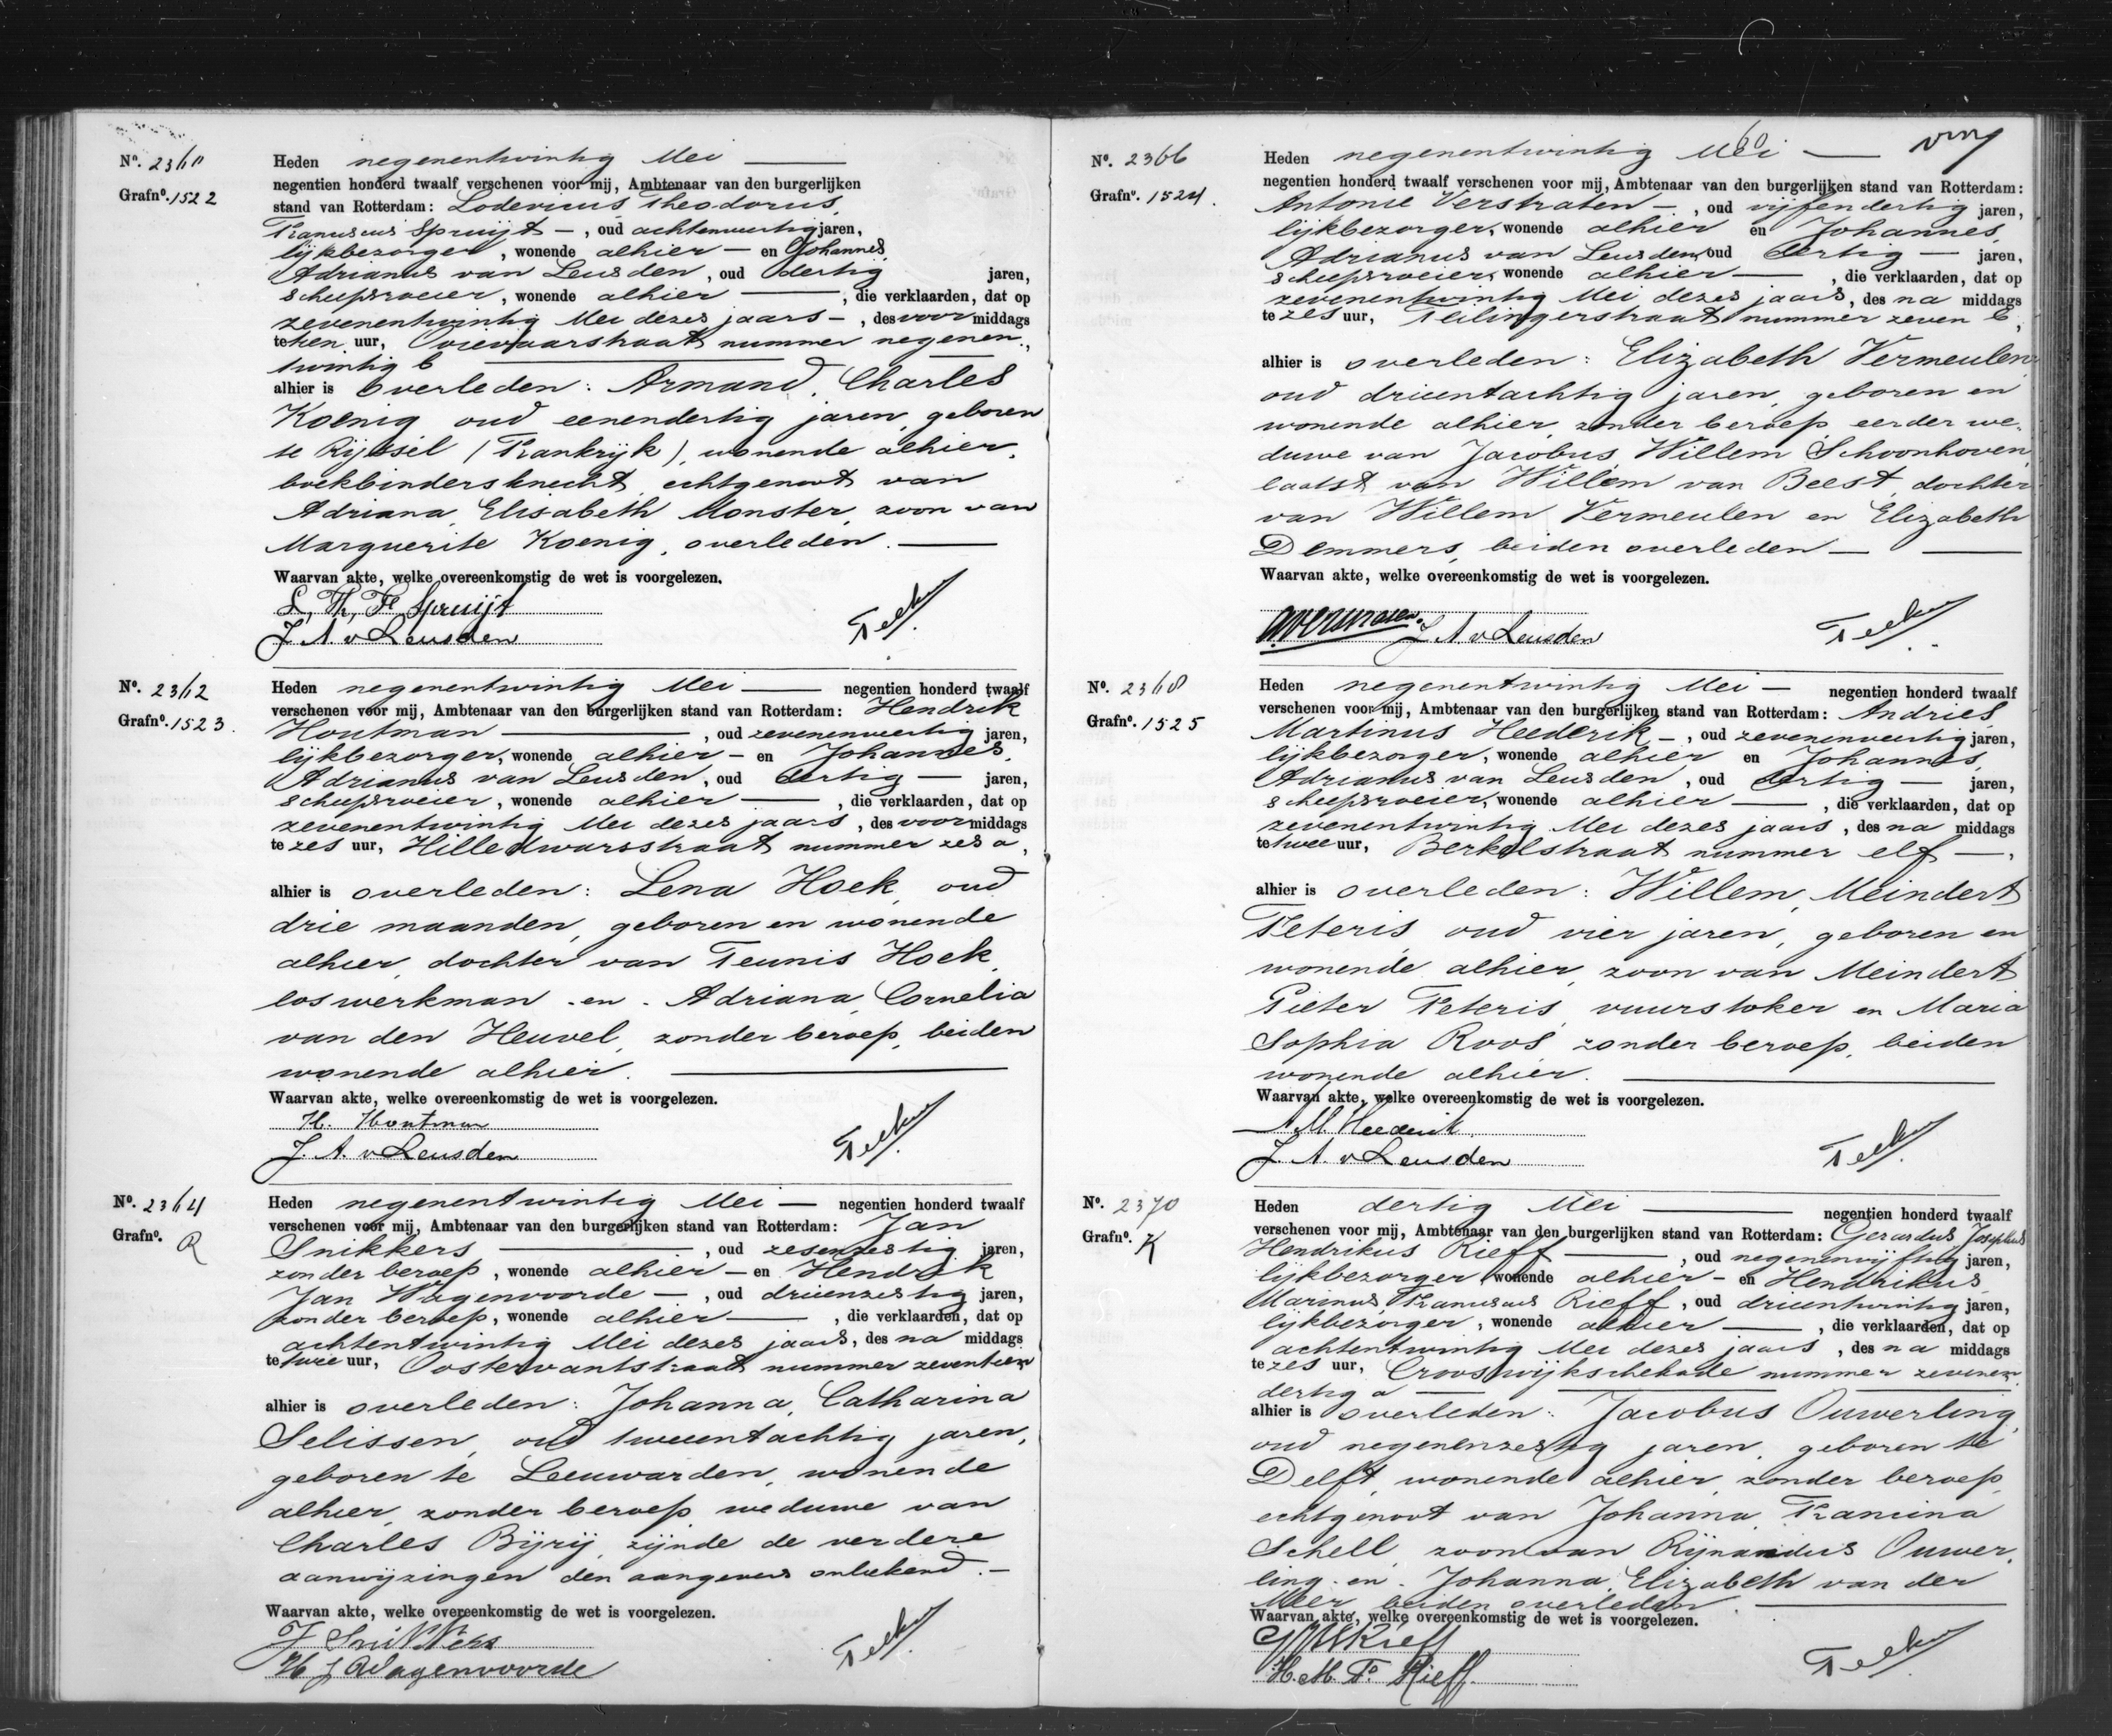 No. 2360
Grafno. 1522
Heden negenentwintig Mei
negentien honderd twaalf verschenen voor mij, Ambtenaar van den burgerlijken
stand van Rotterdam: Lodevicus, Theodorus,
Franciscus Spruijt —, oud achtenveertig jaren,
lijkbezorger, wonende alhier — en Johannes,
Adrianus van Leusden, oud dertig jaren,
scheepsroeier, wonende alhier —, die verklaarden, dat op
zevenentwintig Mei dezes jaars —, des voormiddags
te tien uur, Ooievaarstraat nummer negenen,
twintig b
alhier is overleden: Armand, Charles
Koenig oud eenendertig jaren, geboren
te Rijssel (Frankrijk), wonende alhier,
boekbindersknecht, echtgenoot van
Adriana, Elisabeth Monster, zoon van
Marguerite Koenig, overleden. —
Waarvan akte, welke overeenkomstig de wet is voorgelezen.
L. Th. F. Spruijt
J. A. v Leusden
No. 2362
Grafno. 1523.
Heden negenentwintig Mei — negentien honderd twaalf
verschenen voor mij, Ambtenaar van den burgerlijken stand van Rotterdam: Hendrik
Houtman —, oud zevenenveertig jaren,
lijkbezorger, wonende alhier — en Johannes,
Adrianus van Leusden, oud dertig — jaren,
scheepsroeier, wonende alhier —, die verklaarden, dat op
zevenentwintig Mei dezes jaars, des voormiddags
te zes uur, Hilledwarsstraat nummer zes a,
alhier is overleden: Lena Hoek, oud
drie maanden, geboren en wonende
alhier, dochter van Teunis Hoek,
los werkman en Adriana, Cornelia
van den Heuvel, zonder beroep, beiden
wonende alhier. —
Waarvan akte, welke overeenkomstig de wet is voorgelezen.
H. Houtman
J. A. v Leusden
No. 2364
Grafno. R
Heden negenentwintig Mei — negentien honderd twaalf
verschenen voor mij, Ambtenaar van den burgerlijken stand van Rotterdam: Jan
Snikkers —, oud zesenzestig jaren,
zonder beroep, wonende alhier — en Hendrik
Jan Wagenvoorde —, oud drieenzestig jaren,
zonder beroep, wonende alhier —, die verklaarden, dat op
achtentwintig Mei dezes jaars, des namiddags
te twee uur, Oostervantstraat nummer zeventien
alhier is overleden: Johanna, Catharina
Selissen, oud tweeentachtig jaren,
geboren te Leeuwarden, wonende
alhier, zonder beroep, weduwe van
Charles Bijrij, zijnde de verdere
aanwijzingen den aangevers onbekend. —
Waarvan akte, welke overeenkomstig de wet is voorgelezen.
J Snikkers
H J Wagenvoorde
60
No. 2366
Grafno. 1524.
Heden negenentwintig Mei —
negentien honderd twaalf verschenen voor mij, Ambtenaar van den burgerlijken stand van Rotterdam:
Antonie Verstraten —, oud vijfendertig jaren,
lijkbezorger, wonende alhier en Johannes,
Adrianus van Leusden, oud dertig — jaren,
scheepsroeier, wonende alhier —, die verklaarden, dat op
zevenentwintig Mei dezes jaars, des namiddags
te zes uur, Teilingerstraat nummer zeven C,
alhier is overleden: Elizabeth Vermeulen,
oud drieentachtig jaren, geboren en
wonende alhier, zonder beroep, eerder we-
duwe van Jacobus, Willem Schoonhoven,
laatst van Willem van Beest, dochter
van Willem Vermeulen en Elizabeth
Demmers, beiden overleden —
Waarvan akte, welke overeenkomstig de wet is voorgelezen.
A Verstraten.
J. A. v Leusden
No. 2368
Grafno. 1525
Heden negenentwintig Mei — negentien honderd twaalf
verschenen voor mij, Ambtenaar van den burgerlijken stand van Rotterdam: Andries,
Martinus Heederik —, oud zevenenveertig jaren,
lijkbezorger, wonende alhier en Johannes,
Adrianus van Leusden, oud dertig — jaren,
scheepsroeier, wonende alhier —, die verklaarden, dat op
zevenentwintig Mei dezes jaars, des namiddags
te twee uur, Berkelstraat nummer elf —,
alhier is overleden: Willem, Meindert
Peteris oud vier jaren, geboren en
wonende alhier, zoon van Meindert
Pieter Peteris, vuurstoker en Maria
Sophia Roos, zonder beroep, beiden
wonende alhier. —
Waarvan akte, welke overeenkomstig de wet is voorgelezen.
A. M. Heederik
J. A. v Leusden
No. 2370
Grafno. K
Heden dertig Mei — negentien honderd twaalf
verschenen voor mij, Ambtenaar van den burgerlijken stand van Rotterdam: Gerardus Josephus
Hendrikus Rieff —, oud negenenvijftig jaren,
lijkbezorger, wonende alhier — en Hendrikus,
Marinus, Franciscus Rieff, oud drieentwintig jaren,
lijkbezorger, wonende alhier —, die verklaarden, dat op
achtentwintig Mei dezes jaars, des namiddags
te zes uur, Crooswijkschekade nummer zevenen,
dertig a —
alhier is overleden: Jacobus Ouwerling,
oud negenenzestig jaren, geboren te
Delft, wonende alhier, zonder beroep,
echtgenoot van Johanna, Francina
Schell, zoon van Rijnandus Ouwer,
ling en Johanna, Elizabeth van der
Meer, beiden overleden —
Waarvan akte, welke overeenkomstig de wet is voorgelezen.
G J H Rieff
H. M. F. Rieff.